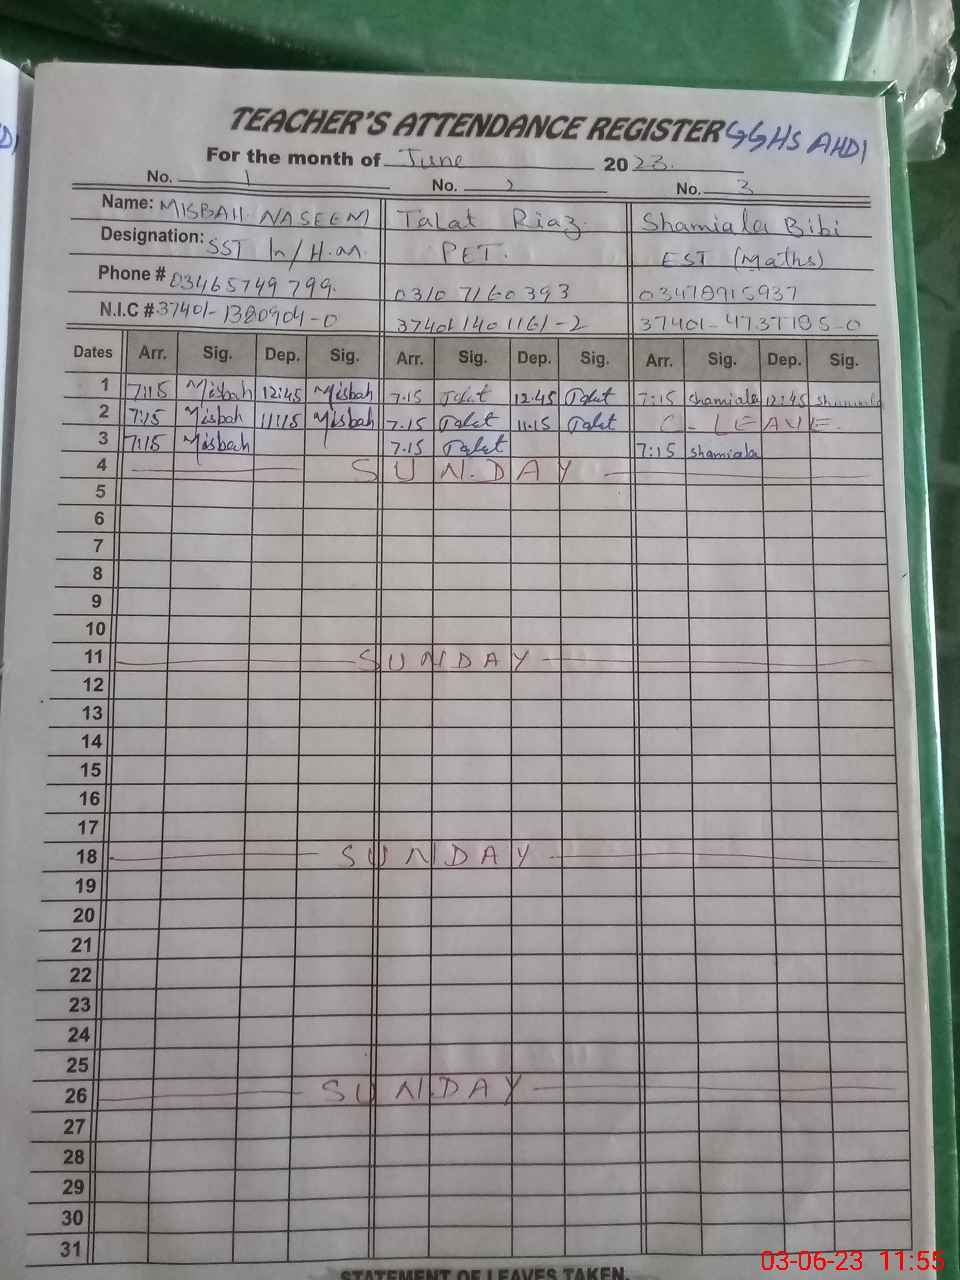 TEACHER'S ATTENDANCE REGISTER GGHS AHDI
For the month of June 2023.
No. 1 No. 2 No. 3
Name: MISBAH NASEEM Talat Riaz. Shamiala Bibi
Designation: SST In/H.M. PET. EST (Maths)
Phone # 03465749799. 03107160393 03478915937
N.I.C # 37401-1380904-0 374011401161-2
Dates Arr. Sig. Dep. Sig. Arr. Sig. Dep. Sig. Arr. Sig. Dep. Sig.
1 7:15 Misbah 12:45 Misbah 7.15 Talat 12.45 Talat 7:15 shamiala 12:45 shamiala
2 7:15 Misbah 11:15 Misbah 7.15 Talat 11.15 Talat C-LEAVE.
3 7:15 Misbah 7.15 Talat 7:15 shamiala
4 SUN.DAY
5
6
7
8
9
10
11 SUNDAY
12
13
14
15
16
17
18 SUNDAY
19
20
21
22
23
24
25
26 SUN.DAY
27
28
29
30
31
STATEMENT OF LEAVES TAKEN.
03-06-23 11:55